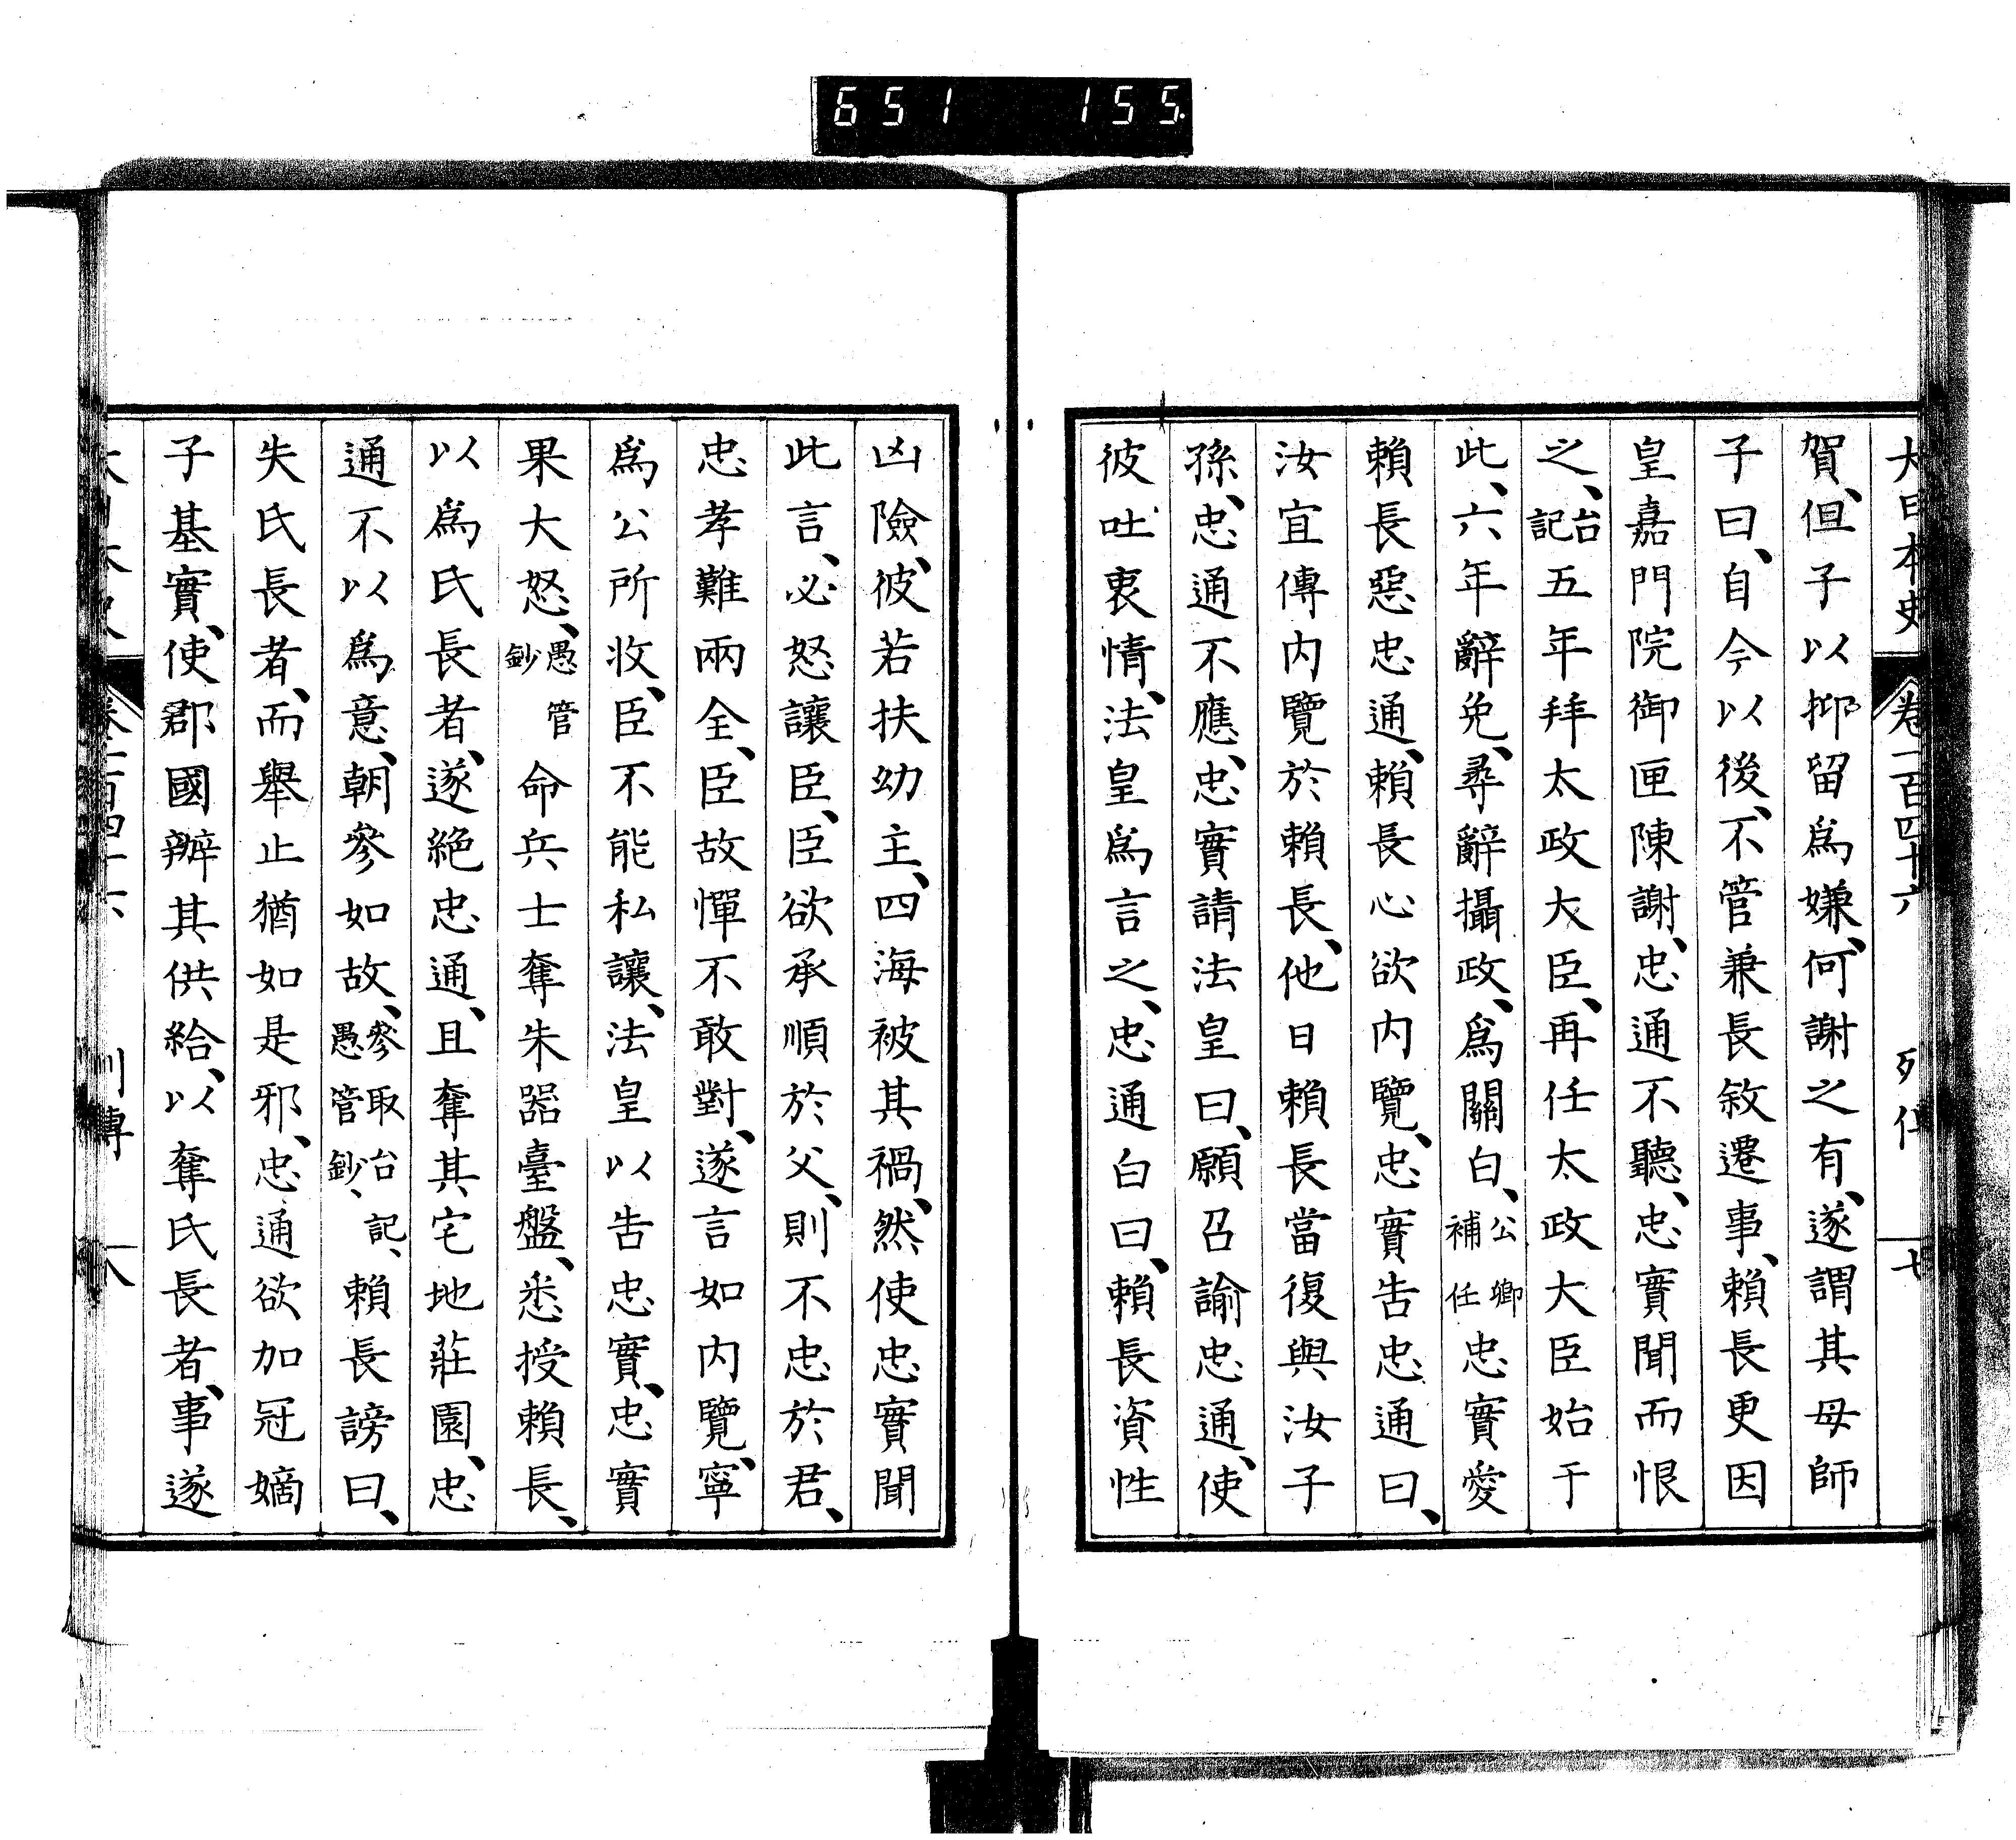 651 155
大日本史 卷一百四十六 列傳 七
賀、但子以抑留爲嫌、何謝之有、遂謂其母師
子曰、自今以後、不管兼長敘遷事、賴長更因
皇嘉門院御匣陳謝、忠通不聽、忠實聞而恨
之、台記五年拜太政大臣、再任太政大臣始于
此、六年辭免、尋辭攝政、爲關白、公卿補任忠實愛
賴長惡忠通、賴長心欲内覽、忠實告忠通曰、
汝宜傳内覽於賴長、他日賴長當復與汝子
孫、忠通不應、忠實請法皇曰、願召諭忠通、使
彼吐衷情、法皇爲言之、忠通白曰、賴長資性
凶險、彼若扶幼主、四海被其禍、然使忠實聞
此言、必怒讓臣、臣欲承順於父、則不忠於君、
忠孝難兩全、臣故憚不敢對、遂言如内覽、寧
爲公所收、臣不能私讓、法皇以告忠實、忠實
果大怒、愚管鈔命兵士奪朱器臺盤、悉授賴長、
以爲氏長者、遂絶忠通、且奪其宅地莊園、忠
通不以爲意、朝參如故、參取台記、愚管鈔、賴長謗曰、
失氏長者、而舉止猶如是邪、忠通欲加冠嫡
子基實、使郡國辨其供給、以奪氏長者、事遂
大日本史 卷一百四十六 列傳 八